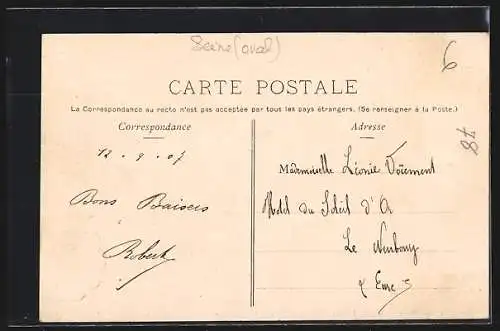 Seine (oval)
6
CARTE POSTALE
La Correspondance au recto n'est pas acceptée par tous les pays étrangers. (Se renseigner à la Poste.)
Correspondance
Adresse
78
12 . 9 . 07
Bons Baisers
Robert
Mademoiselle Léonie
Hotel du Soleil d'Or
Le Neubourg
Eure